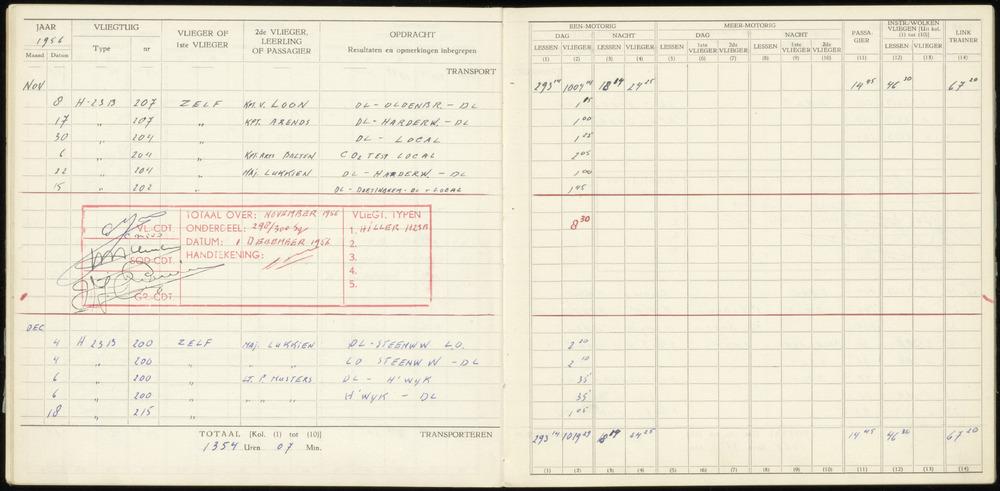 JAAR VLIEGTUIG VLIEGER OF 1ste VLIEGER 2de VLIEGER, LEERLING OF PASSAGIER OPDRACHT
1956 Type nr Resultaten en opmerkingen inbegrepen
Maand Datum
TRANSPORT
NOV
8 H-23B 207 ZELF Kpt. V. LOON DL-OLDENBR.-DL
17 " 207 " KPT. ARENDS DL-HARDERW.-DL
30 " 204 DL - LOCAL
6 " 204 " BALTEN CO2 TEST LOCAL
22 " 204 " MAJ. LUKKIEN DL - HARDERW. - DL
15 " 202 " DL - DOETINCHEM - DL + LOCAL
TOTAAL OVER: NOVEMBER 1956
ONDERDEEL: 298/300 Sq
DATUM: 1 DECEMBER 1956
HANDTEKENING:
VL-CDT.
SQD-CDT.
GR-CDT.
VLIEGT. TYPEN
1. HILLER H23B
2.
3.
4.
5.
DEC
4 H 23B 200 ZELF MAJ. LUKKIEN DL-STEENWW LO.
4 " 200 " " LO STEENW W -DL
6 " 200 LT. P. MUSTERS DL - H'WYK
6 " 200 " " " H'WYK - DL
18 " 215
TOTAAL [Kol. (1) tot (10)] TRANSPORTEREN
1354 Uren 07 Min.
EEN-MOTORIG MEER-MOTORIG PASSA-GIER INSTR./WOLKEN VLIEGEN [Uit kol. (1) tot (10)] LINK TRAINER
DAG NACHT DAG NACHT
LESSEN VLIEGER LESSEN VLIEGER LESSEN 1ste VLIEGER 2de VLIEGER LESSEN 1ste VLIEGER 2de VLIEGER LESSEN VLIEGER
(1) (2) (3) (4) (5) (6) (7) (8) (9) (10) (11) (12) (13) (14)
293 14 1004 14 18 09 24 25 14 45 46 20 67 20
1 05
1 00
1 25
2 05
1 00
1 45
8 30
2 20
2 10
35
35
1 05
293 14 1019 29 18 09 24 25 14 45 46 20 67 20
(1) (2) (3) (4) (5) (6) (7) (8) (9) (10) (11) (12) (13) (14)